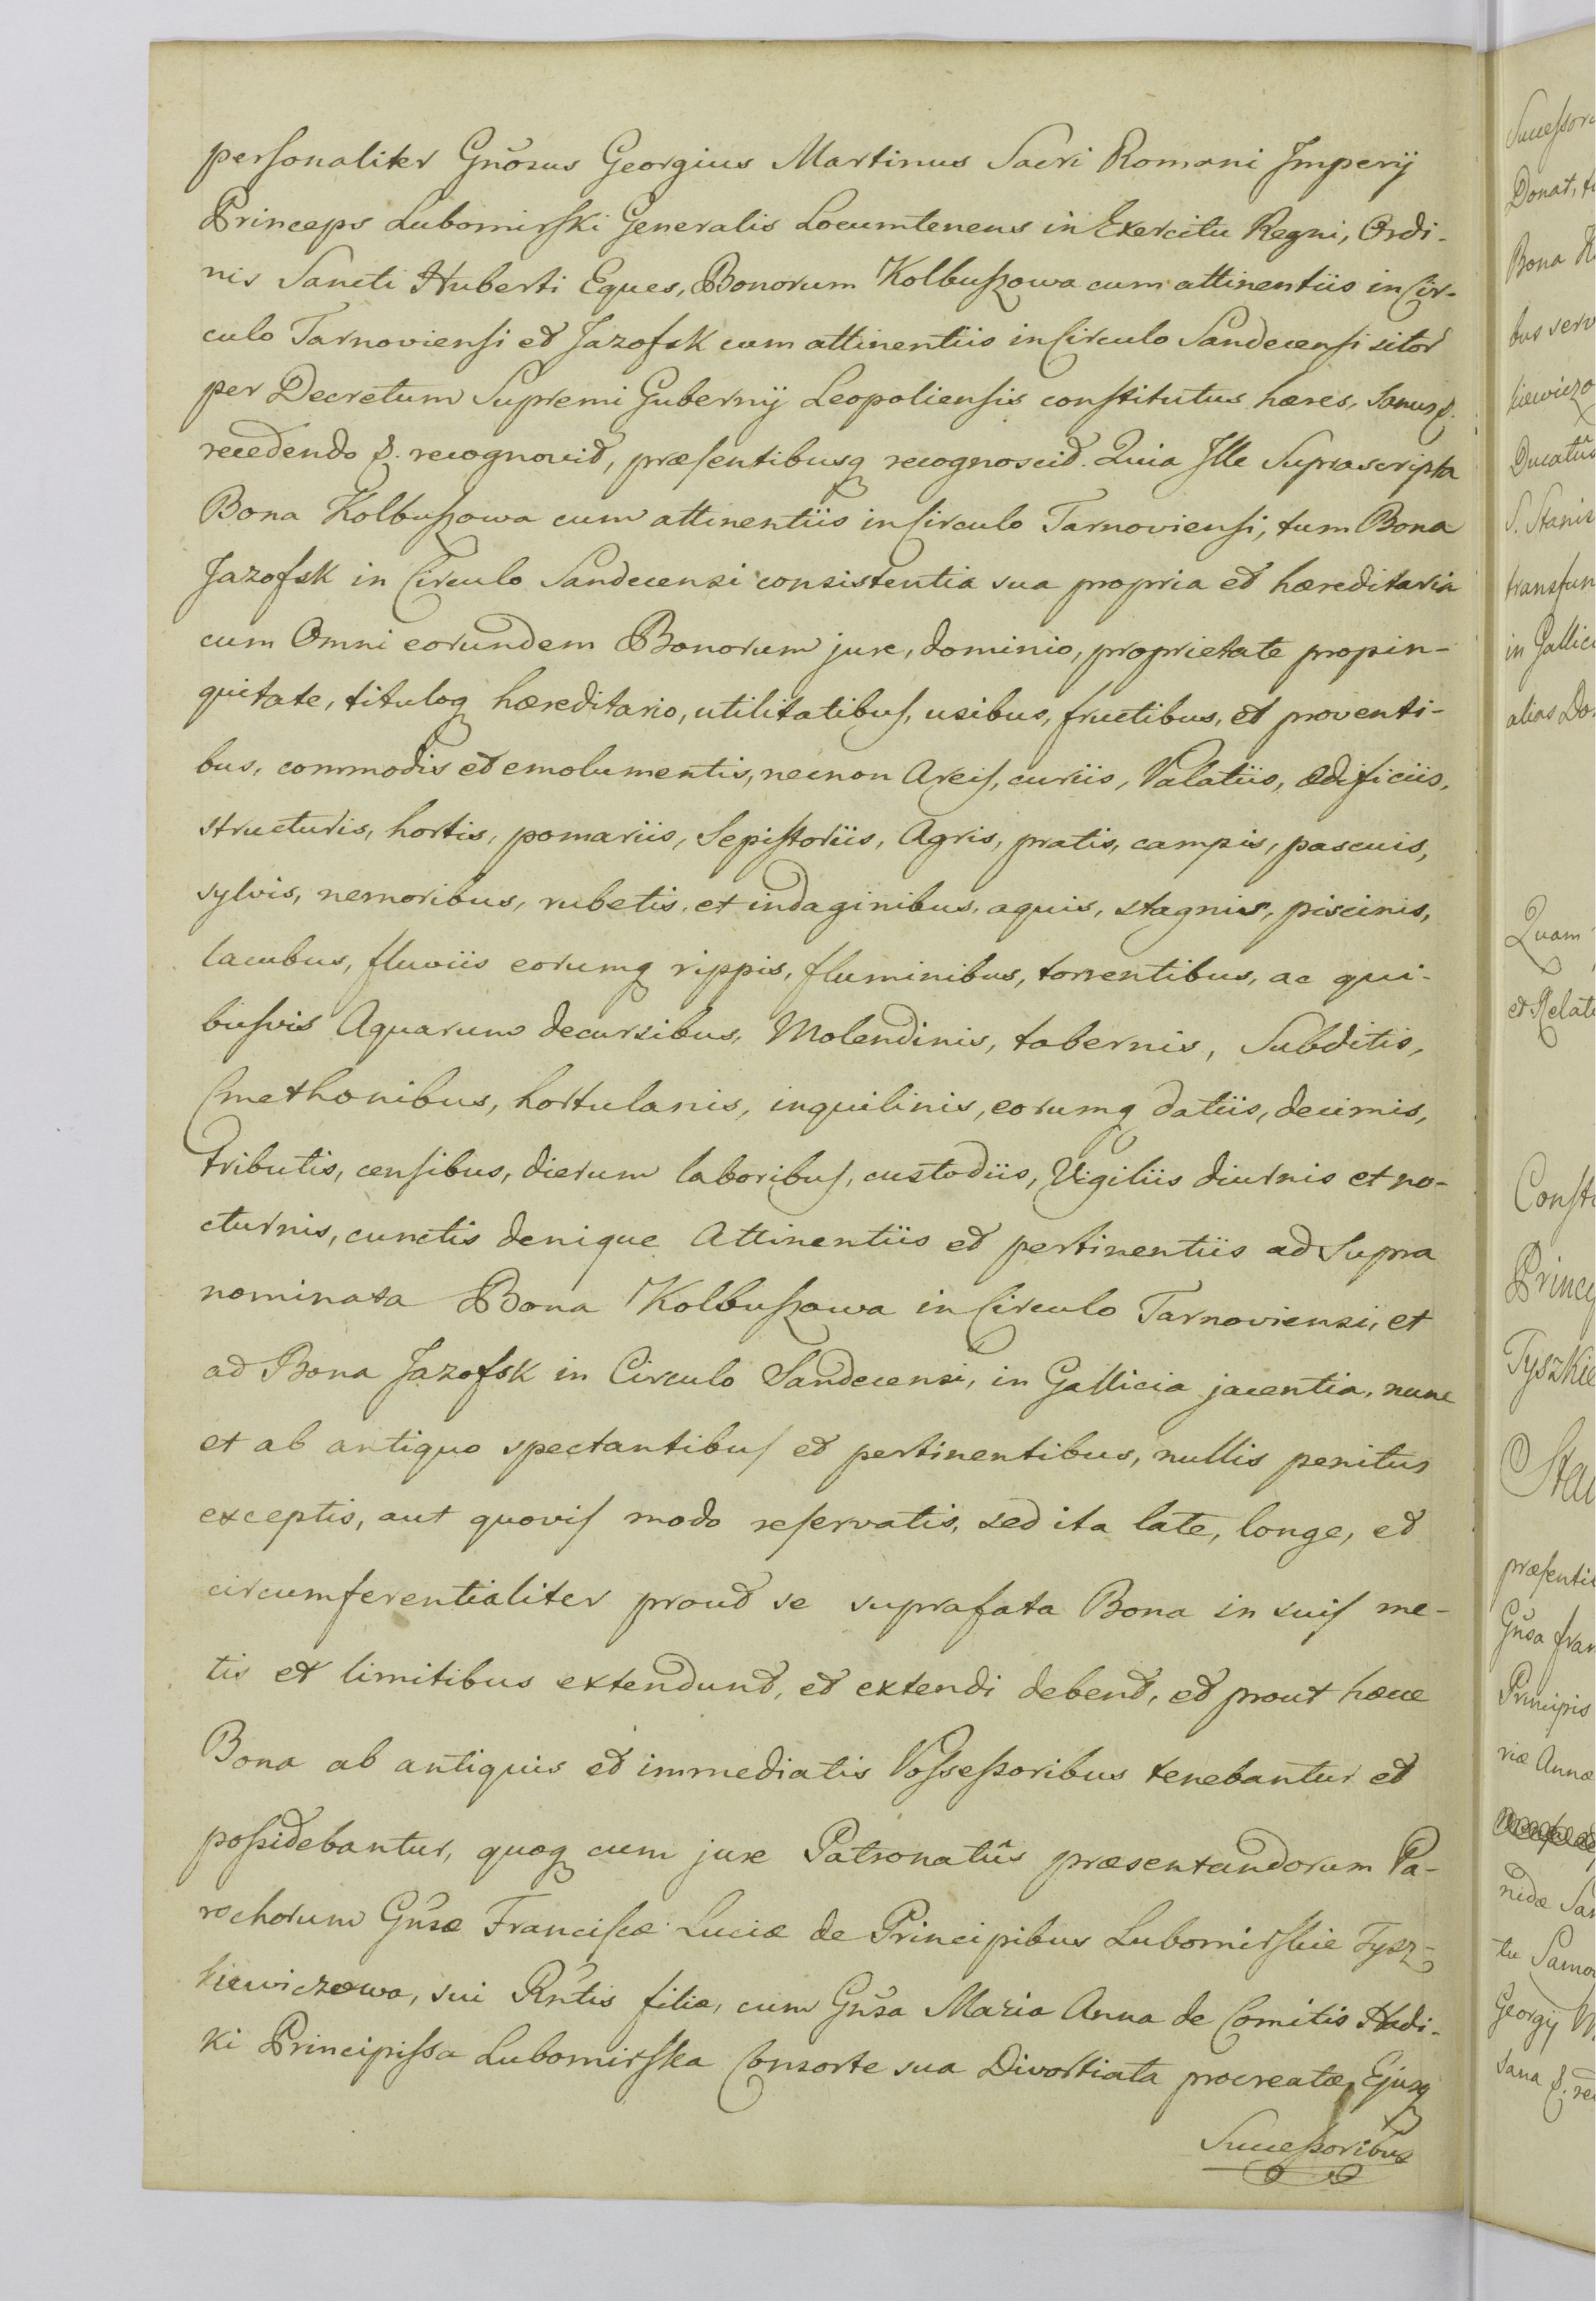 personaliter Gnõsus Georgius Martinus Sacri Romani Imperij
Princeps Lubomirski Generalis Locumtenens in Exercitu Regni, Ordi-
nis Sancti Huberti Eques, Bonorum Kolbuszowa cum attinentiis in Cir-
culo Tarnoviensi et Jazofsk cum attinentiis in Circulo Sandecensi sitor
per Decretum Supremi Gubernij Leopoliensis constitutus hæres, Sanus &.
recedendo &. recognovit, præsentibusq recognoscit. Quia Ille Suprascripta
Bona Kolbuszowa cum attinentiis in Circulo Tarnoviensi, tum Bona
Jazofsk in Circulo Sandecensi consistentia sua propria et hæreditaria
cum Omni eorundem Bonorum jure, dominio, proprietate propin-
quitate, tituloq hæreditario, utilitatibus, usibus, fructibus, et proventi-
bus, commodis et emolumentis, necnon Arcis, curiis, Palatiis, ædificiis,
structuris, hortis, pomariis, Sepistoriis, Agris, pratis, campis, pascuis,
sylvis, nemoribus, rubetis, et indaginibus, aquis, stagnis, piscinis,
lacubus, fluviis eorumq rippis, fluminibus, torrentibus, ac qui-
busvis Aquarum decursibus, Molendinis, tabernis, Subditis,
Cmethonibus, hortulanis, inquilinis, eorumq datiis, decimis,
tributis, censibus, dierum laboribus, custodiis, Vigiliis diurnis et no-
cturnis, cunctis denique Attinentiis et pertinentiis ad Supra
nominata Bona Kolbuszowa in Circulo Tarnoviensi, et
ad Bona Jazofsk in Circulo Sandecensi, in Gallicia jacentia, nunc
et ab antiquo spectantibus et pertinentibus, nullis penitus
exceptis, aut quovis modo reservatis, sed ita late, longe, et
circumferentialiter prout se suprafata Bona in suis me-
tis et limitibus extendunt, et extendi debent, et prout hæcce
Bona ab antiquis et immediatis Possessoribus tenebantur et
possidebantur, quæq cum jure Patronatûs præsentandorum Pa-
rochorum Gnsæ Franciscæ Luciæ de Principibus Lubomirskie Tysz-
kiewiczowa, sui Rntis filiæ, cum Gnsa Maria Anna de Comitis Hadi-
ki Principissa Lubomirska Consorte sua Divortiata procreatæ, Ejusq
Successoribus
Donat,
Bona
bus
Ducatûs
in
alias
Quam
et
Tyszkie
Gnsa
Principis
Annæ
nidæ
tu
Georgij
sana &.